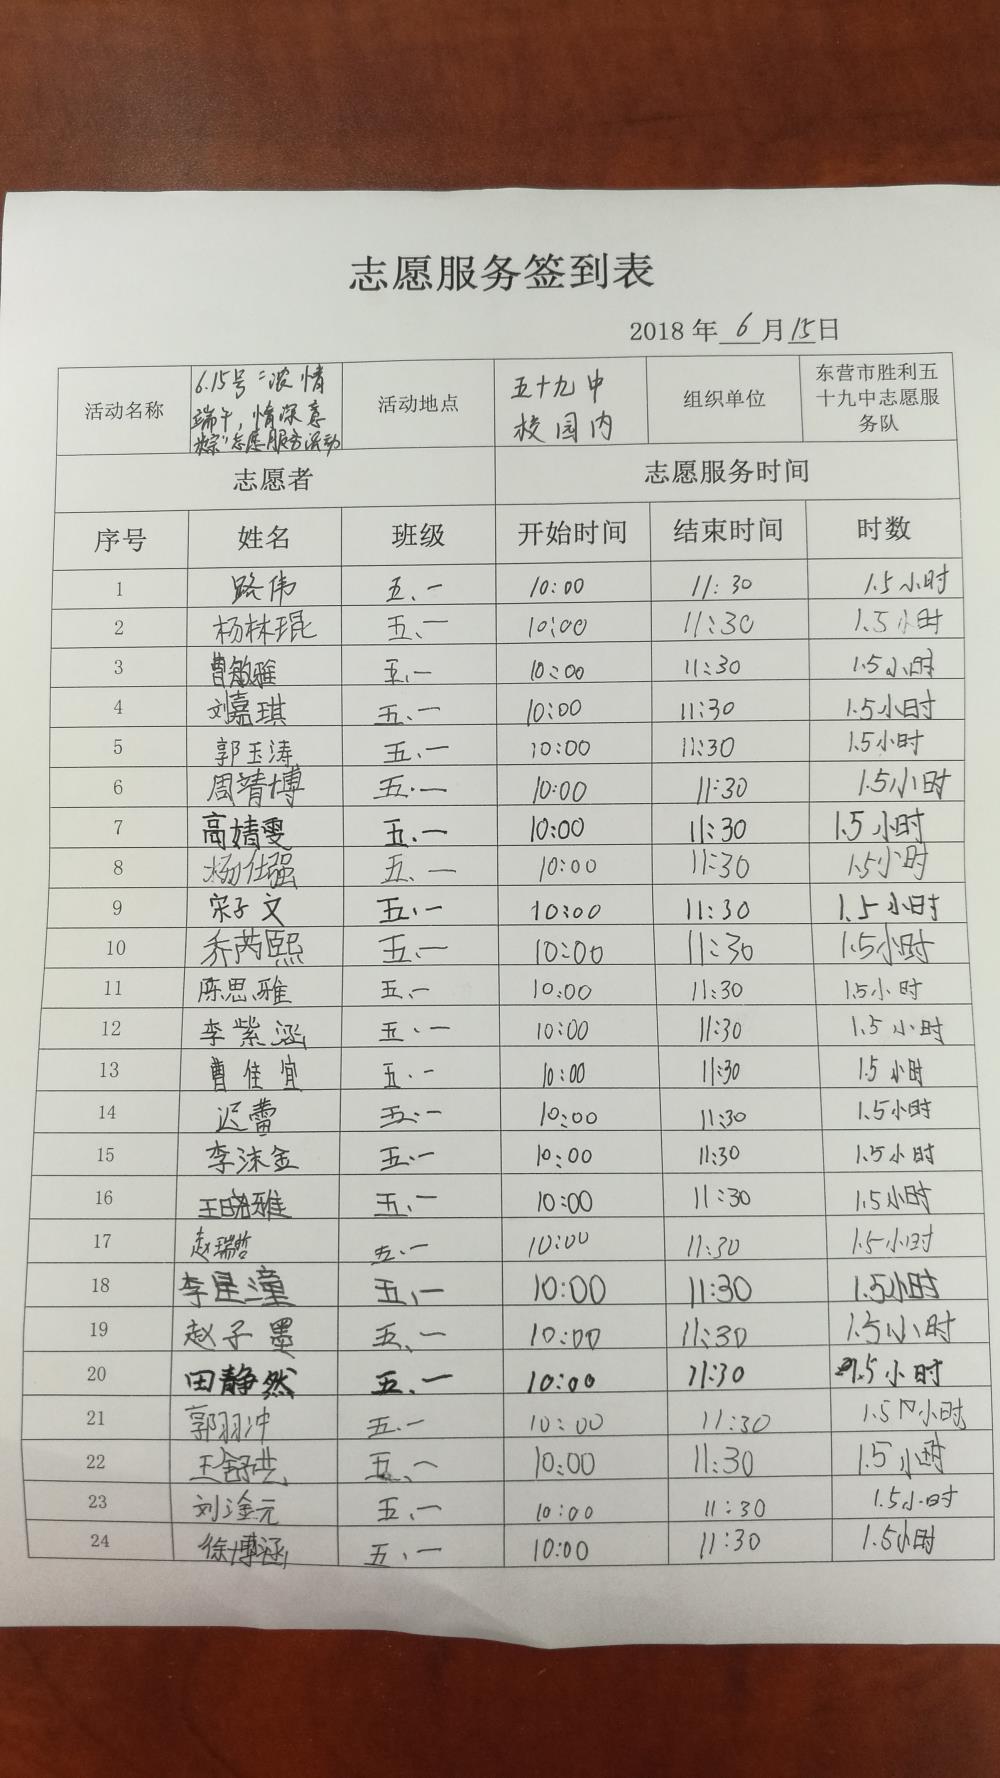 志愿服务签到表
2018 年 6 月 15 日
活动名称 6.15号“浓情端午，情深意粽”志愿服务活动 活动地点 五十九中校园内 组织单位 东营市胜利五十九中志愿服务队
志愿者 志愿服务时间
序号 姓名 班级 开始时间 结束时间 时数
1 路伟 五.一 10:00 11:30 1.5小时
2 杨林琨 五.一 10:00 11:30 1.5小时
3 曹敏雅 五.一 10:00 11:30 1.5小时
4 刘嘉琪 五.一 10:00 11:30 1.5小时
5 郭玉涛 五.一 10:00 11:30 1.5小时
6 周靖博 五.一 10:00 11:30 1.5小时
7 高婧雯 五.一 10:00 11:30 1.5小时
8 杨仕强 五.一 10:00 11:30 1.5小时
9 宋子文 五.一 10:00 11:30 1.5小时
10 乔芮熙 五.一 10:00 11:30 1.5小时
11 陈思雅 五.一 10:00 11:30 1.5小时
12 李紫涵 五.一 10:00 11:30 1.5小时
13 曹佳宜 五.一 10:00 11:30 1.5小时
14 迟蕾 五.一 10:00 11:30 1.5小时
15 李沫金 五.一 10:00 11:30 1.5小时
16 王晓雅 五.一 10:00 11:30 1.5小时
17 赵瑞哲 五.一 10:00 11:30 1.5小时
18 李星潼 五.一 10:00 11:30 1.5小时
19 赵子墨 五.一 10:00 11:30 1.5小时
20 田静然 五.一 10:00 11:30 1.5小时
21 郭羽冲 五.一 10:00 11:30 1.5小时
22 王舒 五.一 10:00 11:30 1.5小时
23 刘淦元 五.一 10:00 11:30 1.5小时
24 徐博涵 五.一 10:00 11:30 1.5小时